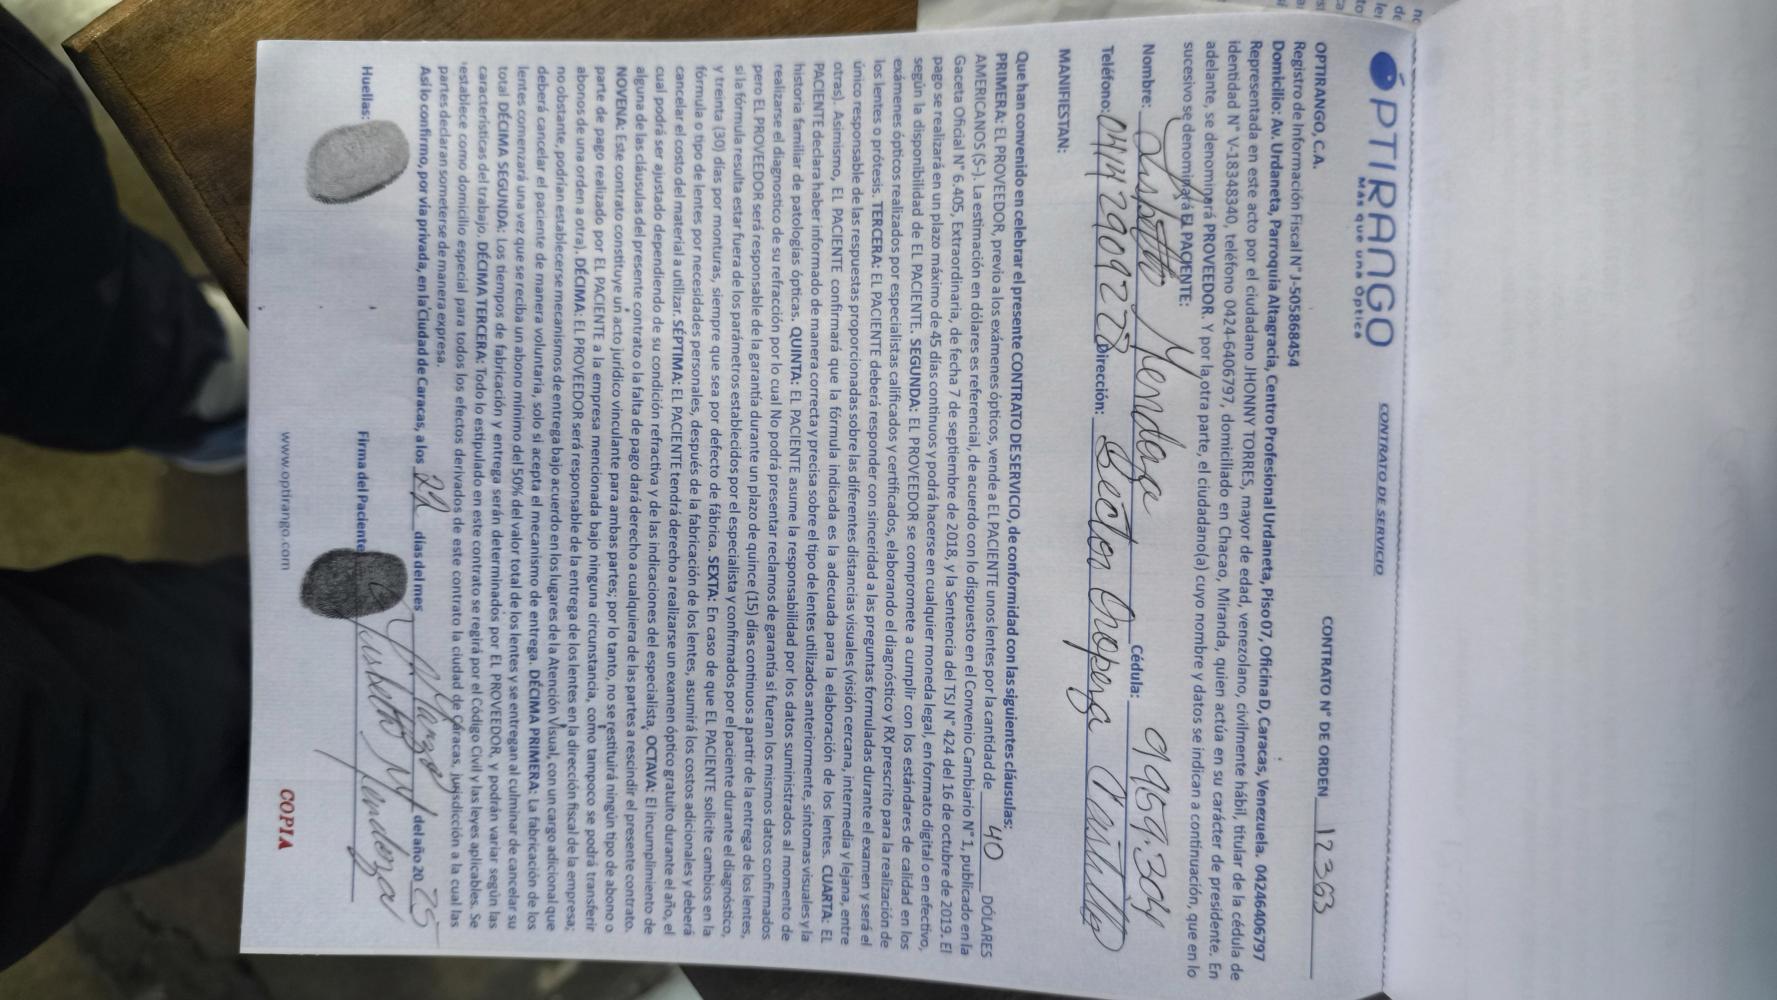 ÓPTIRANGO
Más que una Óptica
CONTRATO DE SERVICIO
CONTRATO N° DE ORDEN 12363
OPTIRANGO, C.A.
Registro de Información Fiscal N° J-505868454
Domicilio: Av. Urdaneta, Parroquia Altagracia, Centro Profesional Urdaneta, Piso 07, Oficina D, Caracas, Venezuela. 04246406797
Representada en este acto por el ciudadano JHONNY TORRES, mayor de edad, venezolano, civilmente hábil, titular de la cédula de
identidad N° V-18348340, teléfono 0424-6406797, domiciliado en Chacao, Miranda, quien actúa en su carácter de presidente. En
adelante, se denominará PROVEEDOR. Y por la otra parte, el ciudadano(a) cuyo nombre y datos se indican a continuación, que en lo
sucesivo se denominará EL PACIENTE:
Nombre: Lisbeth Mendoza Cédula: 9959.304
Teléfono: 04142909228 Dirección: Sector Oropeza Castillo
MANIFIESTAN:
Que han convenido en celebrar el presente CONTRATO DE SERVICIO, de conformidad con las siguientes cláusulas:
PRIMERA: EL PROVEEDOR, previo a los exámenes ópticos, vende a EL PACIENTE unos lentes por la cantidad de 40 DÓLARES
AMERICANOS (S-). La estimación en dólares es referencial, de acuerdo con lo dispuesto en el Convenio Cambiario N° 1, publicado en la
Gaceta Oficial N° 6.405, Extraordinaria, de fecha 7 de septiembre de 2018, y la Sentencia del TSJ N° 424 del 16 de octubre de 2019. El
pago se realizará en un plazo máximo de 45 días continuos y podrá hacerse en cualquier moneda legal, en formato digital o en efectivo,
según la disponibilidad de EL PACIENTE. SEGUNDA: EL PROVEEDOR se compromete a cumplir con los estándares de calidad en los
exámenes ópticos realizados por especialistas calificados y certificados, elaborando el diagnóstico y RX prescrito para la realización de
los lentes o prótesis. TERCERA: EL PACIENTE deberá responder con sinceridad a las preguntas formuladas durante el examen y será el
único responsable de las respuestas proporcionadas sobre las diferentes distancias visuales (visión cercana, intermedia y lejana, entre
otras). Asimismo, EL PACIENTE confirmará que la fórmula indicada es la adecuada para la elaboración de los lentes. CUARTA: EL
PACIENTE declara haber informado de manera correcta y precisa sobre el tipo de lentes utilizados anteriormente, síntomas visuales y la
historia familiar de patologías ópticas. QUINTA: EL PACIENTE asume la responsabilidad por los datos suministrados al momento de
realizarse el diagnostico de su refracción por lo cual No podrá presentar reclamos de garantía si fueran los mismos datos confirmados
pero EL PROVEEDOR será responsable de la garantía durante un plazo de quince (15) días continuos a partir de la entrega de los lentes,
si la fórmula resulta estar fuera de los parámetros establecidos por el especialista y confirmados por el paciente durante el diagnóstico,
y treinta (30) días por monturas, siempre que sea por defecto de fábrica. SEXTA: En caso de que EL PACIENTE solicite cambios en la
fórmula o tipo de lentes por necesidades personales, después de la fabricación de los lentes, asumirá los costos adicionales y deberá
cancelar el costo del material a utilizar. SÉPTIMA: EL PACIENTE tendrá derecho a realizarse un examen óptico gratuito durante el año, el
cual podrá ser ajustado dependiendo de su condición refractiva y de las indicaciones del especialista, OCTAVA: El incumplimiento de
alguna de las cláusulas del presente contrato o la falta de pago dará derecho a cualquiera de las partes a rescindir el presente contrato.
NOVENA: Este contrato constituye un acto jurídico vinculante para ambas partes; por lo tanto, no se restituirá ningún tipo de abono o
parte de pago realizado por EL PACIENTE a la empresa mencionada bajo ninguna circunstancia, como tampoco se podrá transferir
abonos de una orden a otra). DÉCIMA: EL PROVEEDOR será responsable de la entrega de los lentes en la dirección fiscal de la empresa;
no obstante, podrían establecerse mecanismos de entrega bajo acuerdo en los lugares de la Atención Visual, con un cargo adicional que
deberá cancelar el paciente de manera voluntaria, solo si acepta el mecanismo de entrega. DÉCIMA PRIMERA: La fabricación de los
lentes comenzará una vez que se reciba un abono mínimo del 50% del valor total de los lentes y se entregan al culminar de cancelar su
total DÉCIMA SEGUNDA: Los tiempos de fabricación y entrega serán determinados por EL PROVEEDOR, y podrán variar según las
características del trabajo. DÉCIMA TERCERA: Todo lo estipulado en este contrato se regirá por el Código Civil y las leyes aplicables. Se
establece como domicilio especial para todos los efectos derivados de este contrato la ciudad de Caracas, jurisdicción a la cual las
partes declaran someterse de manera expresa.
Así lo confirmo, por vía privada, en la ciudad de Caracas, a los 22 días del mes Marzo del año 2025
Huellas: Firma del Paciente Lisbeth M Mendoza
www.optirango.com
COPIA